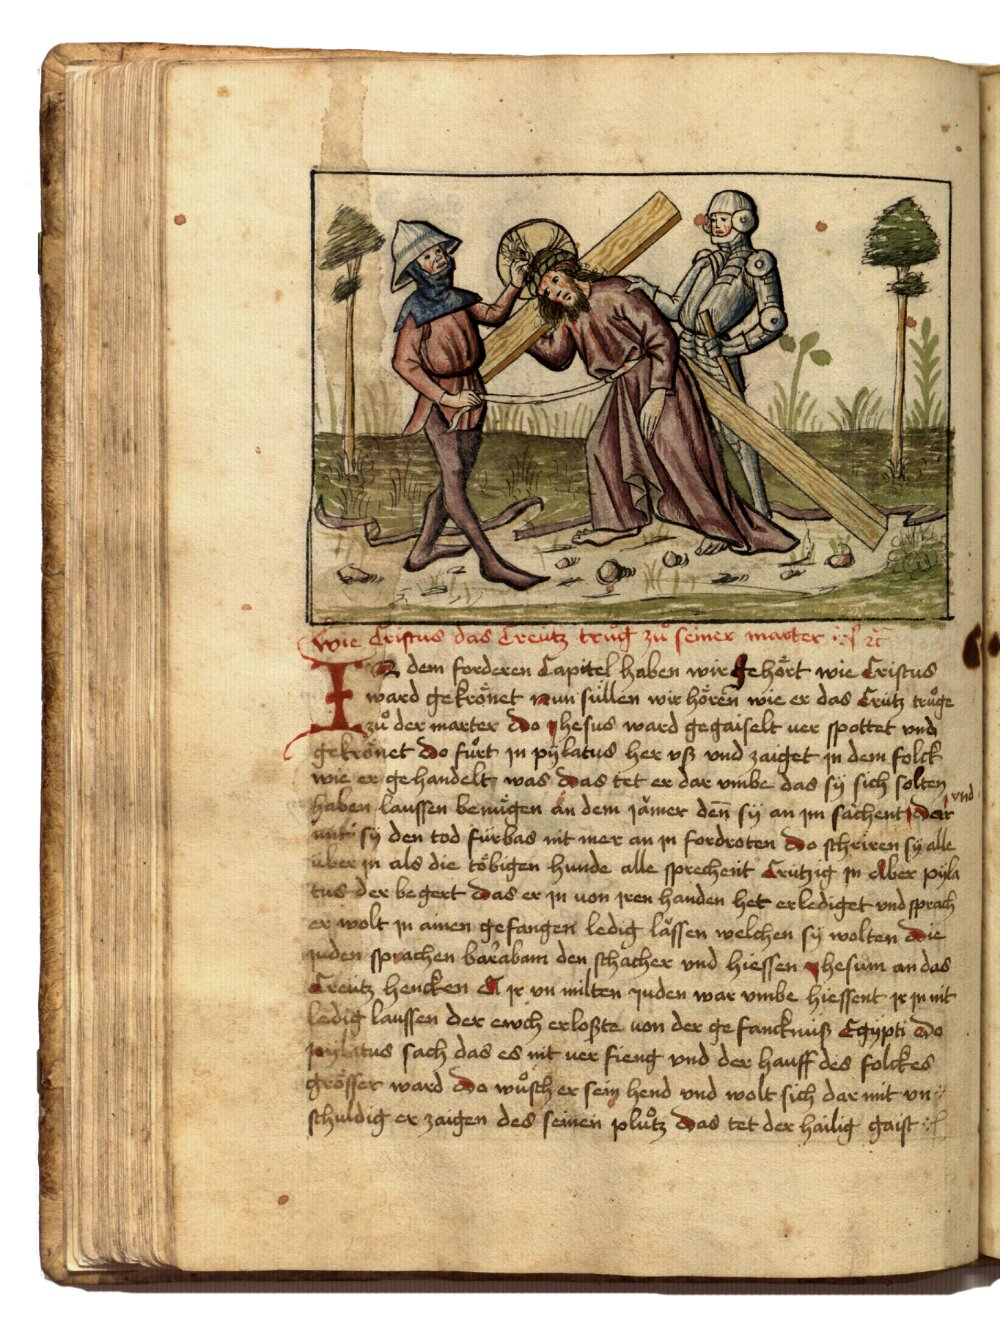 Wie Cristus das Creütz trůg zů seiner marter
IN dem forderen Capitel haben wir gehört wie Cristus
ward gekrönet nun süllen wir hören wie er das Crütz trůge
zů der marter Do Jhesus ward gegaiselt ver spottet und
gekrönet Do fůrt jn pÿlatus her uß vnd zaiget jn dem folck
wie er gehandelt was Das tet er dar vmbe das sÿ sich solten
haben laussen benügen an dem jamer den sÿ an jm sachent vnd
sÿ den tod fürbas nit mer an jn fordroten Do schriren sÿ alle
über jn als die töbigen hunde alle sprechent Crützig jn Aber pÿla
tus der begert Das er jn von jren handen het erlediget vnd sprach
er wolt jn ainen gefangen ledig lässen welchen sÿ wolten Die
juden sprachen barabam den schacher vnd hiessen Jhesum an das
Creütz hencken O jr vn milten juden war vmbe hiessent jr jn nit
ledig laussen der ewch erloßte von der gefancknuß Egÿpti Do
pÿlatus sach das es nit ver fieng vnd der hauff des folckes
grösser ward Do wůsch er sein hend vnd wolt sich dar mit vn
schuldig er zaigen des seinen plůtz Das tet der hailig gaist